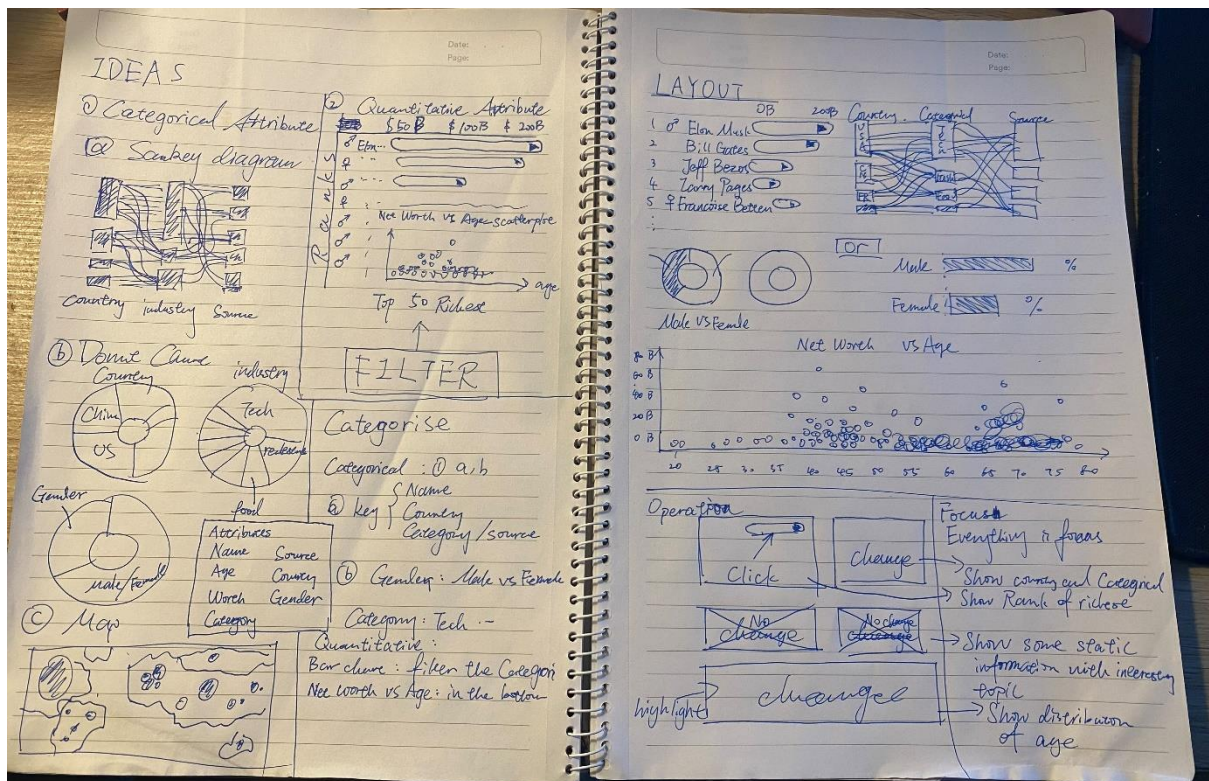 Date:
Page:
IDEAS
① Categorical Attribute
ⓐ Sankey diagram
Country industry Source
ⓑ Donut Chart
Country
industry
China
US
Tech
food
Gender
male/Female
Attributes
Name Source
Age Country
Worth Gender
Category
ⓒ Map
② Quantitative Attribute
$50B $100B $200B
Ranks
♂ Elon...
♀
♂
♀
♂
♂
♂
Net Worth vs Age scatterplot
age
Top 50 Richest
FILTER
Categorise
Categorical : ① a,b
ⓐ key { Name
Country
Category/source
ⓑ Gender: Male vs Female
Category: Tech
Quantitative:
Bar chart: filter the Categori
Net worth vs Age: in the bottom
Date:
Page:
LAYOUT
0B 200B
1 ♂ Elon Musk
2 Bill Gates
3 Jeff Bezos
4 Larry Pages
5 ♀ Francoise Betten
Country Categorical Source
USA
or
Male %
Female %
Male VS Female
Net Worth vs Age
80 B
60 B
40 B
20 B
0 B
20 25 30 35 40 45 50 55 60 65 70 75 80
Operation
Click
Change
No change
No change
highlight
change
Focus
Everything is focus
Show country and Categorical
Show Rank of richest
Show some static
information with interesting
topic
Show distribution
of age